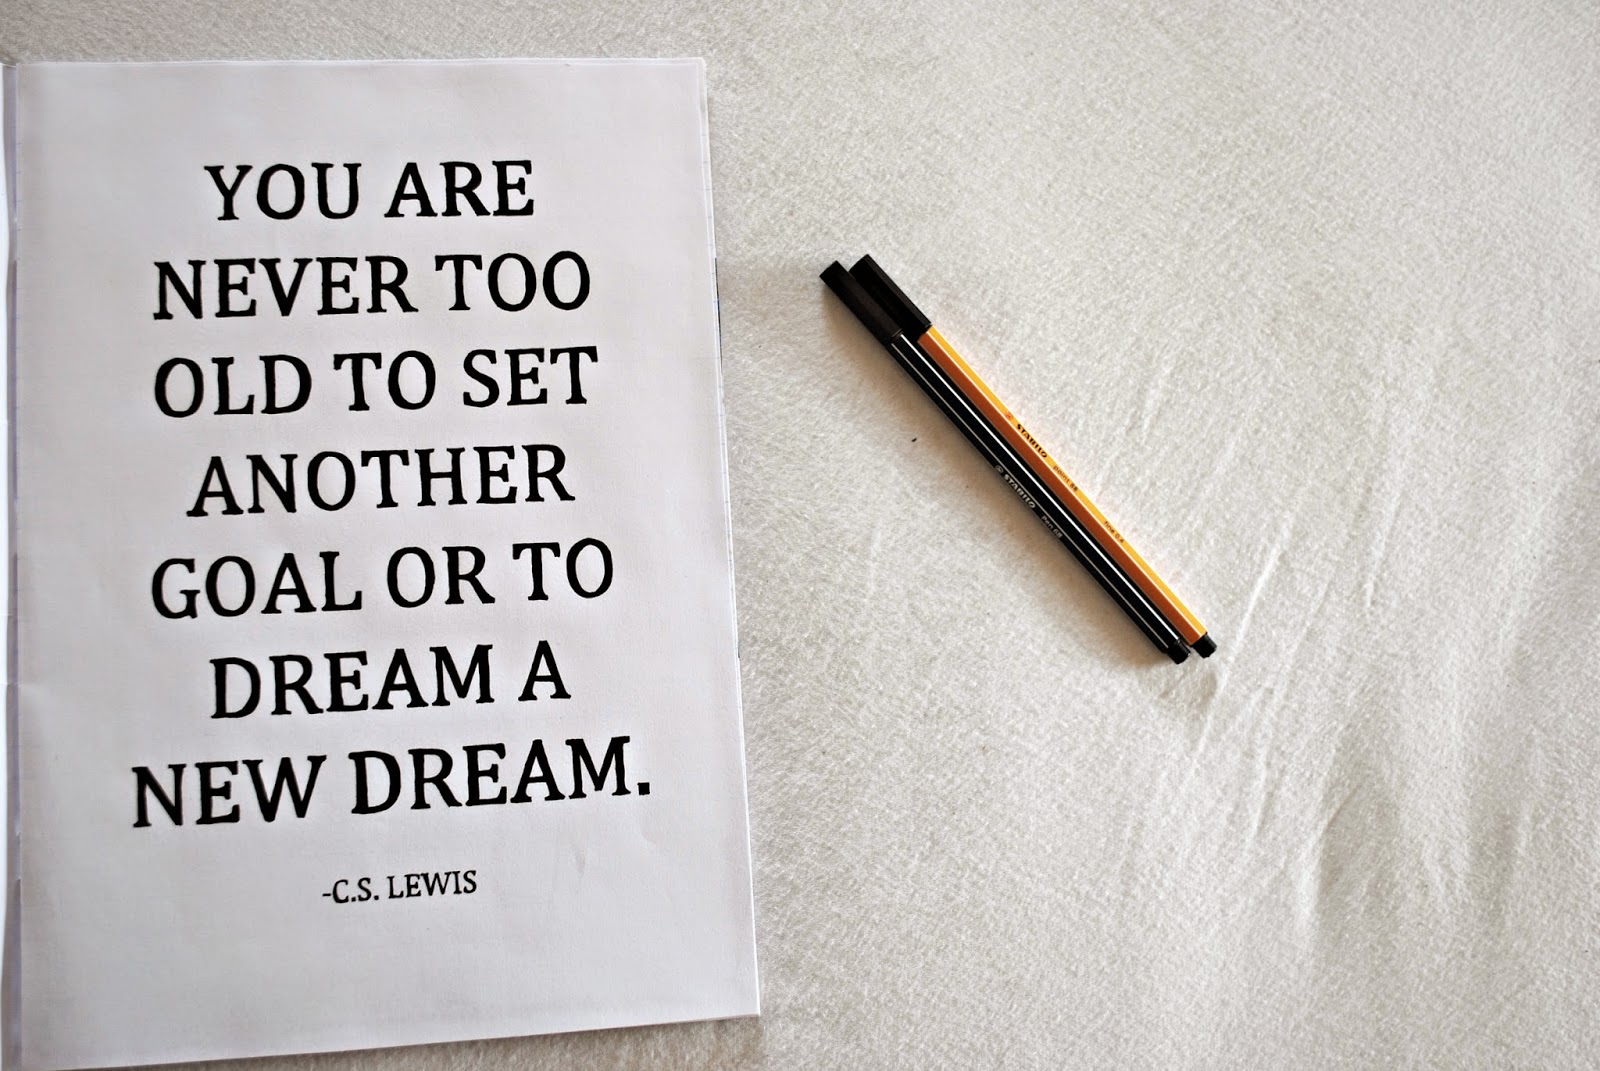 YOU ARE
NEVER TOO
OLD TO SET
ANOTHER
GOAL OR TO
DREAM A
NEW DREAM.
-C.S. LEWIS
STABILO point 88 fine 0.4
STABILO Pen 68